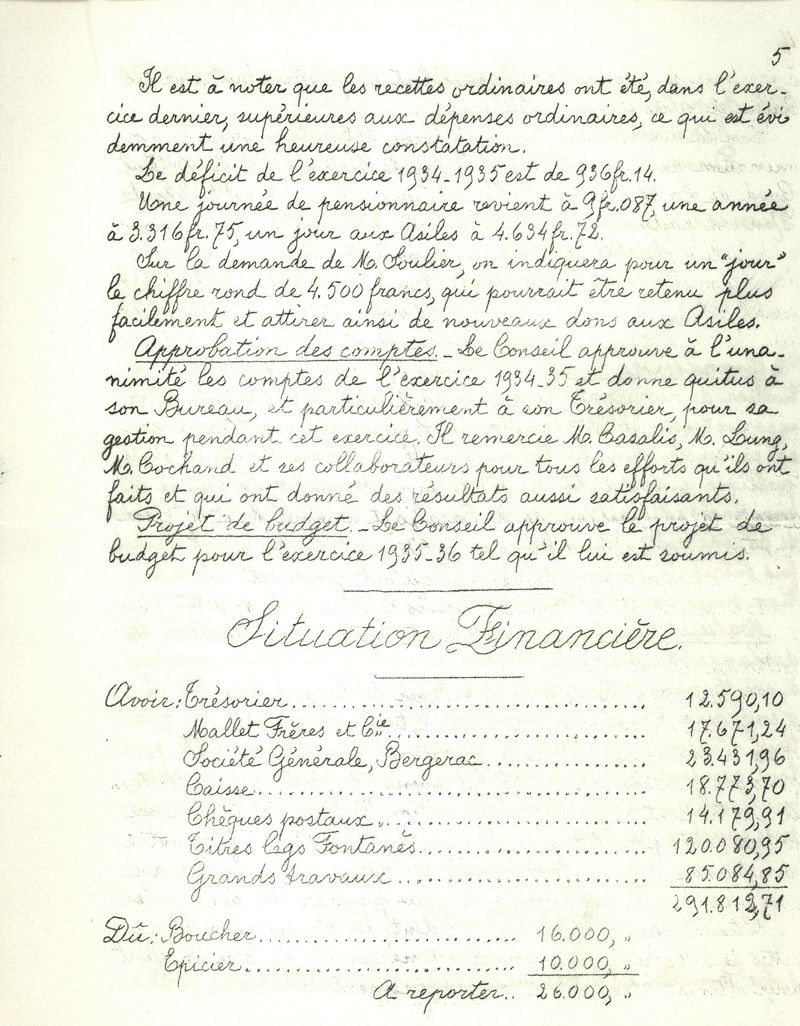 5
Il est à noter que les recettes ordinaires ont été, dans l'exer-
cice dernier, supérieures aux dépenses ordinaires, ce qui est évi
demment une heureuse constatation.
Le déficit de l'exercice 1934-1935 est de 936fr.14.
Une journée de pensionnaire revient à 9fr.087, une année
à 3.316fr.75, un jour aux Asiles à 4.634fr.72.
Sur la demande de M. Soulier, on indiquera pour un "jour"
le chiffre rond de 4.500 francs, qui pourrait être retenu plus
facilement et attirer ainsi de nouveaux dons aux Asiles.
Approbation des comptes. - Le Conseil approuve à l'una-
nimité les comptes de l'exercice 1934-35 et donne quitus à
son Bureau, et particulièrement à son Trésorier, pour sa
gestion pendant cet exercice. Il remercie M. Casalis, M. Lung,
M. Cochand et ses collaborateurs pour tous les efforts qu'ils ont
faits et qui ont donné des résultats aussi satisfaisants.
Projet de budget. - Le Conseil approuve le projet de
budget pour l'exercice 1935-36 tel qu'il lui est soumis.
Situation Financière.
Avoir: Trésorier.......... 12.590,10
Mallet Frères et Cie.......... 17.671,24
Société Générale, Bergerac.......... 23.431,96
Caisse.......... 18.773,70
Chèques postaux.......... 14.179,91
Titres legs Fontanès.......... 120.080,95
Grands travaux.......... 85.084,85
291.812,71
Dû: Boucher.......... 16.000, "
Epicier.......... 10.000, "
A reporter.. 26.000, "